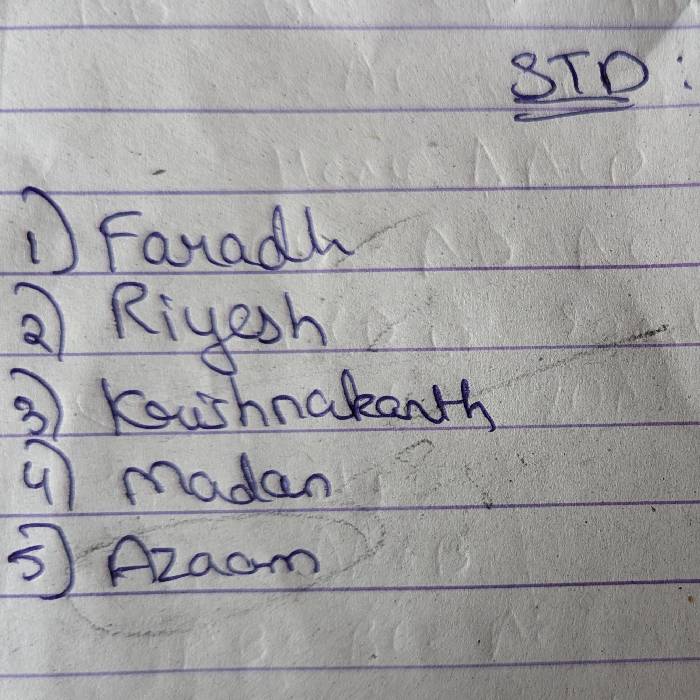 STD :
1) Faradh
2) Riyesh
3) Krishnakanth
4) Madan
5) Azaam